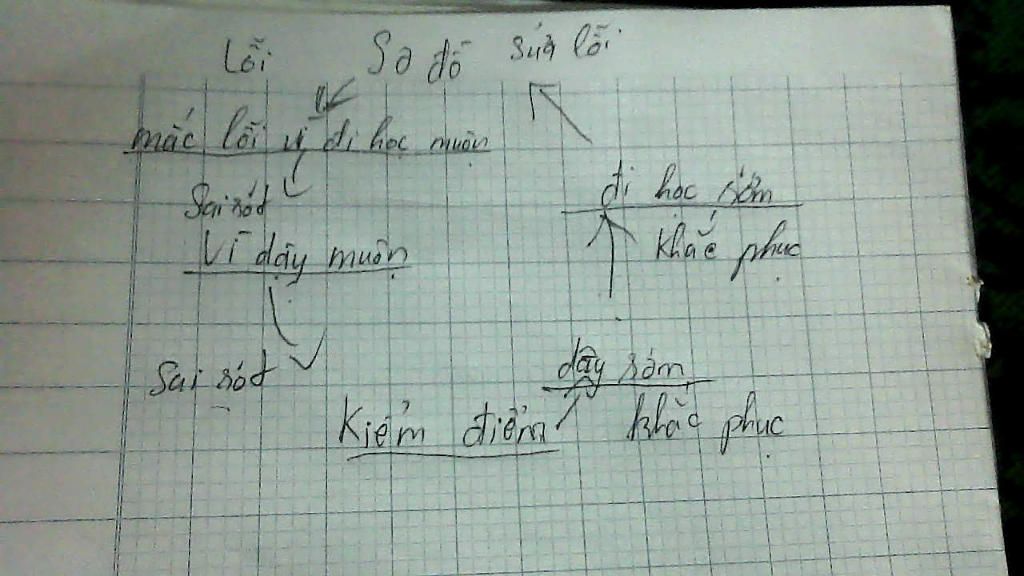 Lỗi Sơ đồ sửa lỗi
mắc lỗi vì đi học muộn
đi học sớm
Sai sót
Vì dậy muộn
khắc phục
Sai sót
dậy sớm
Kiểm điểm
khắc phục